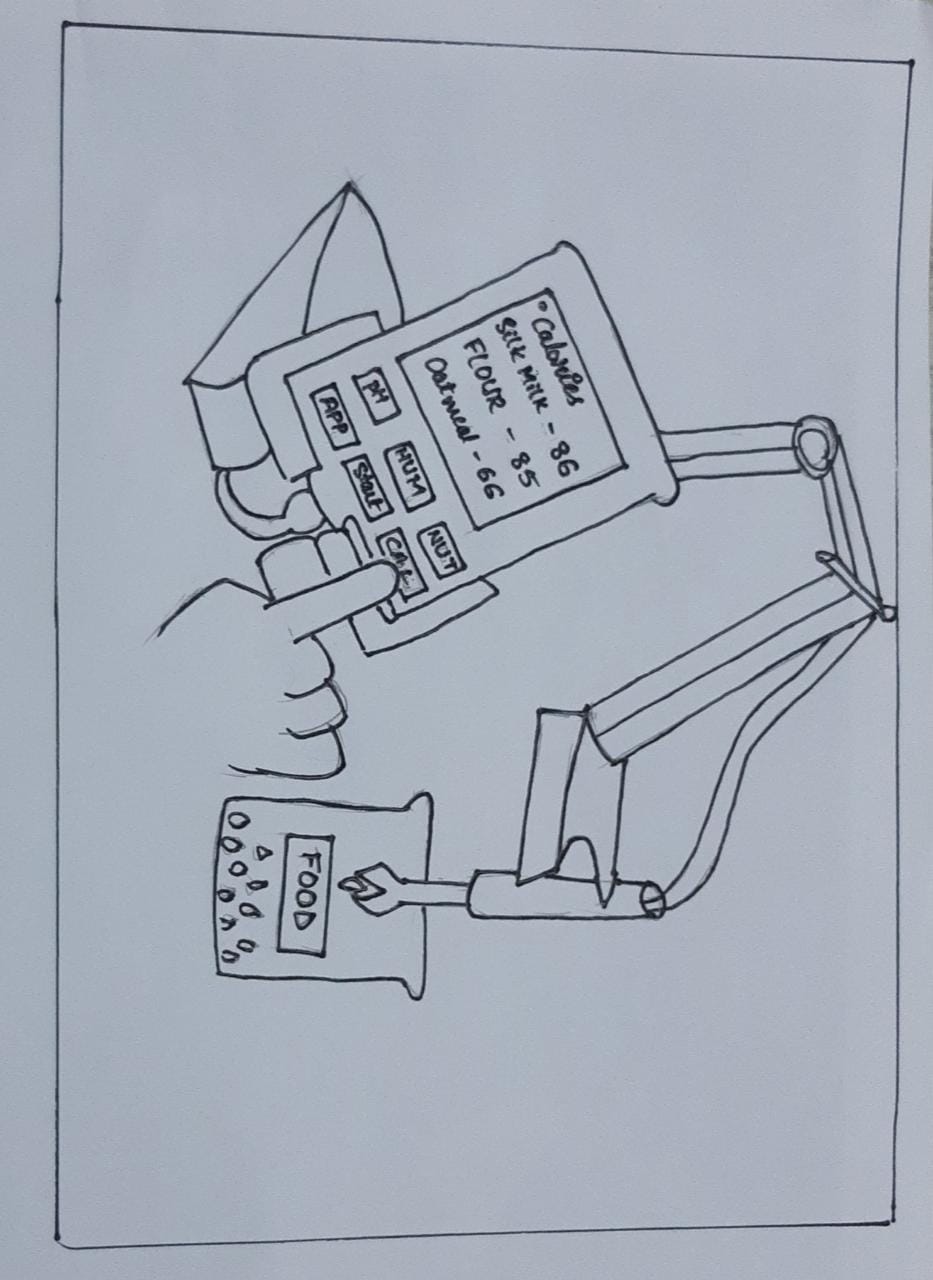 Calories
Silk Milk - 86
FLOUR - 85
Oatmeal - 66
PH HUM NUT
APP Start
FOOD